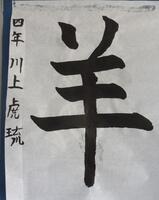 羊
四年川上虎琉